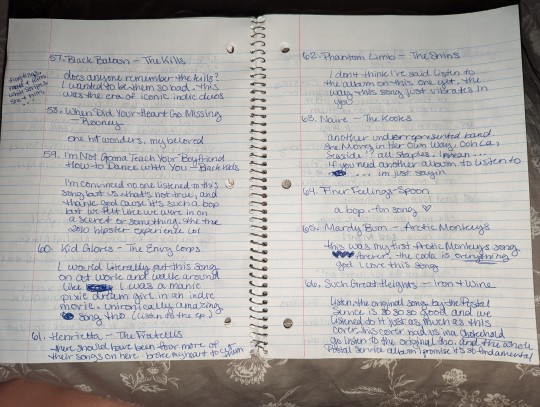 57. Black Baloon - The Kills
does anyone remember the kills?
I wanted to be them so bad. this
was the era of iconic indie duos
58. When Did Your Heart Go Missing
- Rooney
one hit wonders, my beloved
59. I'm Not Gonna Teach Your Boyfriend
How to Dance with You - Black Kids
I'm convinced no one listened to this
song but us. what's not true, and
thank god cause it's such a bop
but we felt like we were in on
a secret or something. the true
2010 hipster experience lol
60. Kid Gloves - The Envy Corps
I would literally put this song
on at work and walk around
like I was a manic
pixie dream girl in an indie
movie. unironically amazing
song tho (listen to the ep)
61. Henrietta - The Fratellis
there should have been four more of
their songs on here - broke my heart to
62. Phantom Limb - The Shins
I don't think I've said listen to
the album on this one yet. the
way this song just vibrates in
you
63. Naive - The Kooks
another underrepresented band.
She Moves in Her Own Way, Ooh La,
Seaside?? all staples. I mean...
if you need another album to listen to
... im just sayin
64. Finer Feelings - Spoon
a bop. fun song ♡
65. Mardy Bum - Arctic Monkeys
this was my first Arctic Monkeys song.
forever. the coda is everything
god I love this song
66. Such Great Heights - Iron + Wine
Listen, the original song by the Postal
Service is so so so good and we
listened to it just as much as this
cover. this cover had us in a chokehold
go listen to the original tho. and the whole
Postal Service album I promise it's so fundamental